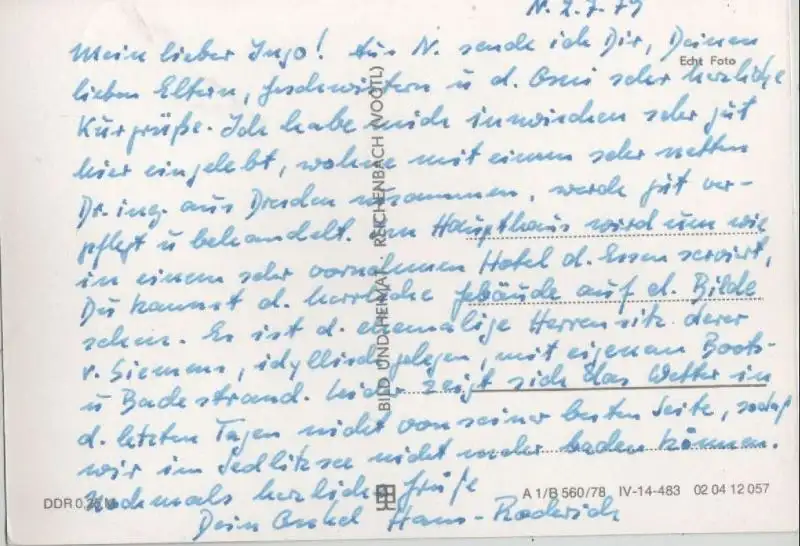 N. 2.7.79
Mein lieber Ingo! Aus N. sende ich Dir, Deinen
Echt Foto
lieben Eltern, Geschwistern u d. Omi sehr herzliche
Kurgrüße. Ich habe mich inzwischen sehr gut
hier eingelebt, wohne mit einem sehr netten
Dr. ing. aus Dresden zusammen, werde gut ver-
pflegt u behandelt. Im Haupthaus wird uns wie
in einem sehr vornehmen Hotel d. Essen serviert,
Du kannst d. herrliche Gebäude auf d. Bilde
sehen. Es ist d. ehemalige Herrensitz derer
v. Siemens, idyllisch gelegen, mit eigenem Boots-
u Badestrand. Leider zeigt sich das Wetter in
d. letzten Tagen nicht von seiner besten Seite, sodaß
wir im Sedlitzsee nicht mehr baden können.
Nochmals herzliche Grüße
Dein Onkel Hans-Roderich
BILD UND HEIMAT REICHENBACH (VOGTL)
DDR 0, M
A 1/B 560/78 IV-14-483 02 04 12 057